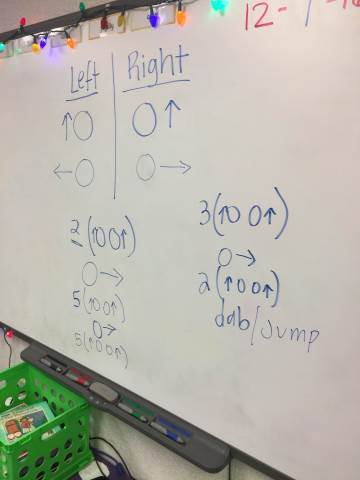 12-1-
Left Right
↑O O↑
←O O→
2(↑O O↑)
O→
5(↑O O↑)
O→
5(↑O O↑)
3(↑O O↑)
O→
2(↑O O↑)
dab/Jump